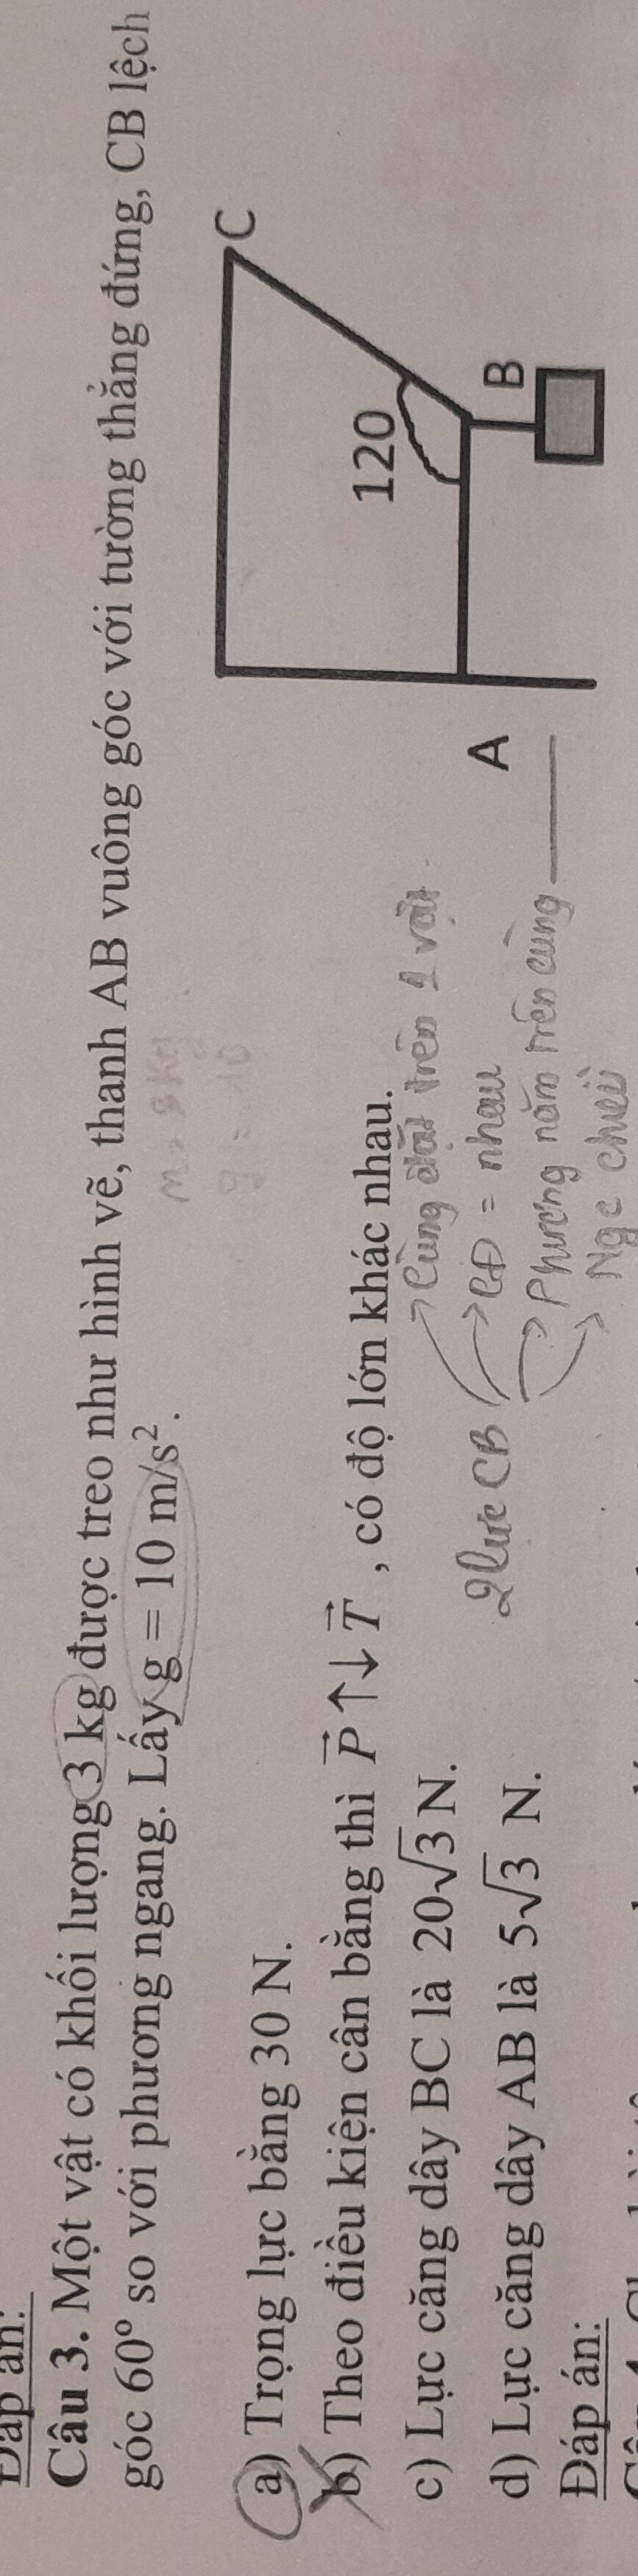 Đáp án:
Câu 3. Một vật có khối lượng 3 kg được treo như hình vẽ, thanh AB vuông góc với tường thẳng đứng, CB lệch
góc 60° so với phương ngang. Lấy g = 10 m/s².
m = 3 kg
g = 10
a) Trọng lực bằng 30 N.
b) Theo điều kiện cân bằng thì P⃗ ↑↓ T⃗ , có độ lớn khác nhau.
c) Lực căng dây BC là 20√3 N.
d) Lực căng dây AB là 5√3 N.
2 lực CB
→ Cùng đặt trên 1 vật
→ CĐ = nhau
→ Phương nằm trên cùng
→ Ngc chiều
C
120
B
A
Đáp án: